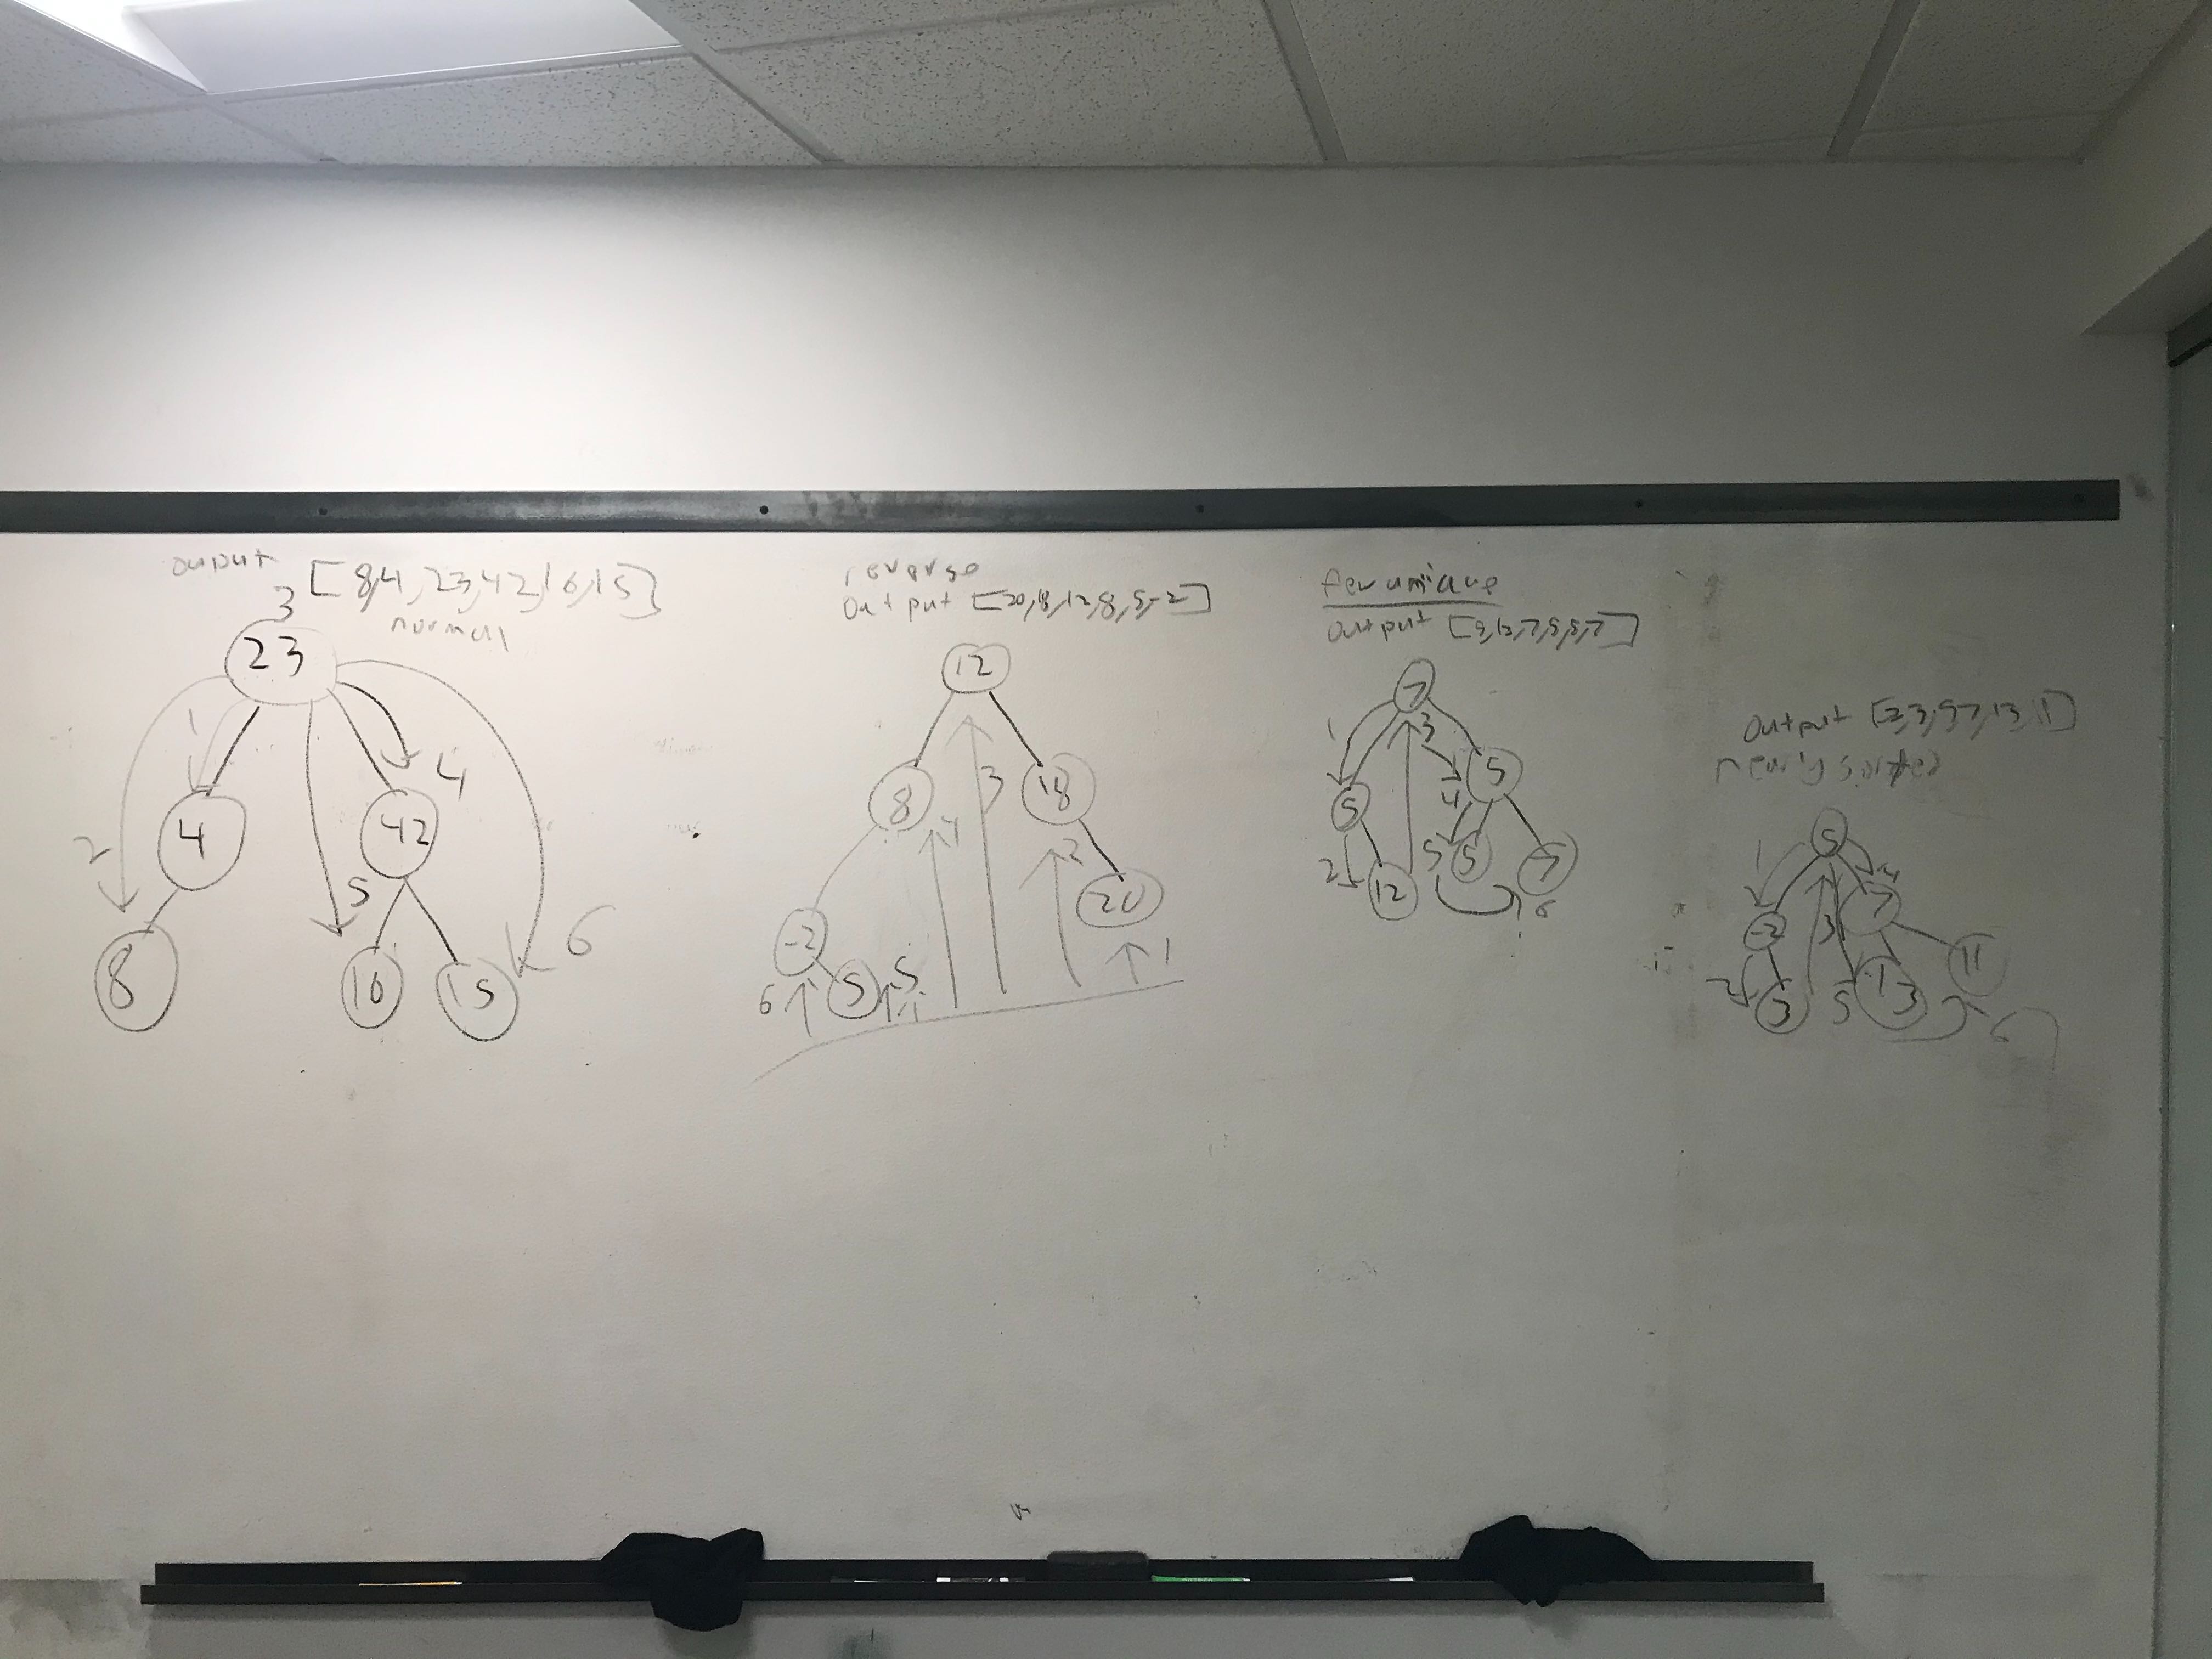 output
[8,4,23,42,16,15]
normal
3
23
1
4
4
42
2
5
8
16
15
6
reverse
output [20,18,12,8,5,-2]
12
8
3
18
4
2
-2
20
6
5
5
1
few unique
output [5,12,7,5,5,7]
7
1
3
5
5
4
2
12
5
5
7
6
output [-2,3,5,7,13,11]
nearly sorted
5
1
4
7
-2
3
11
2
3
5
13
6